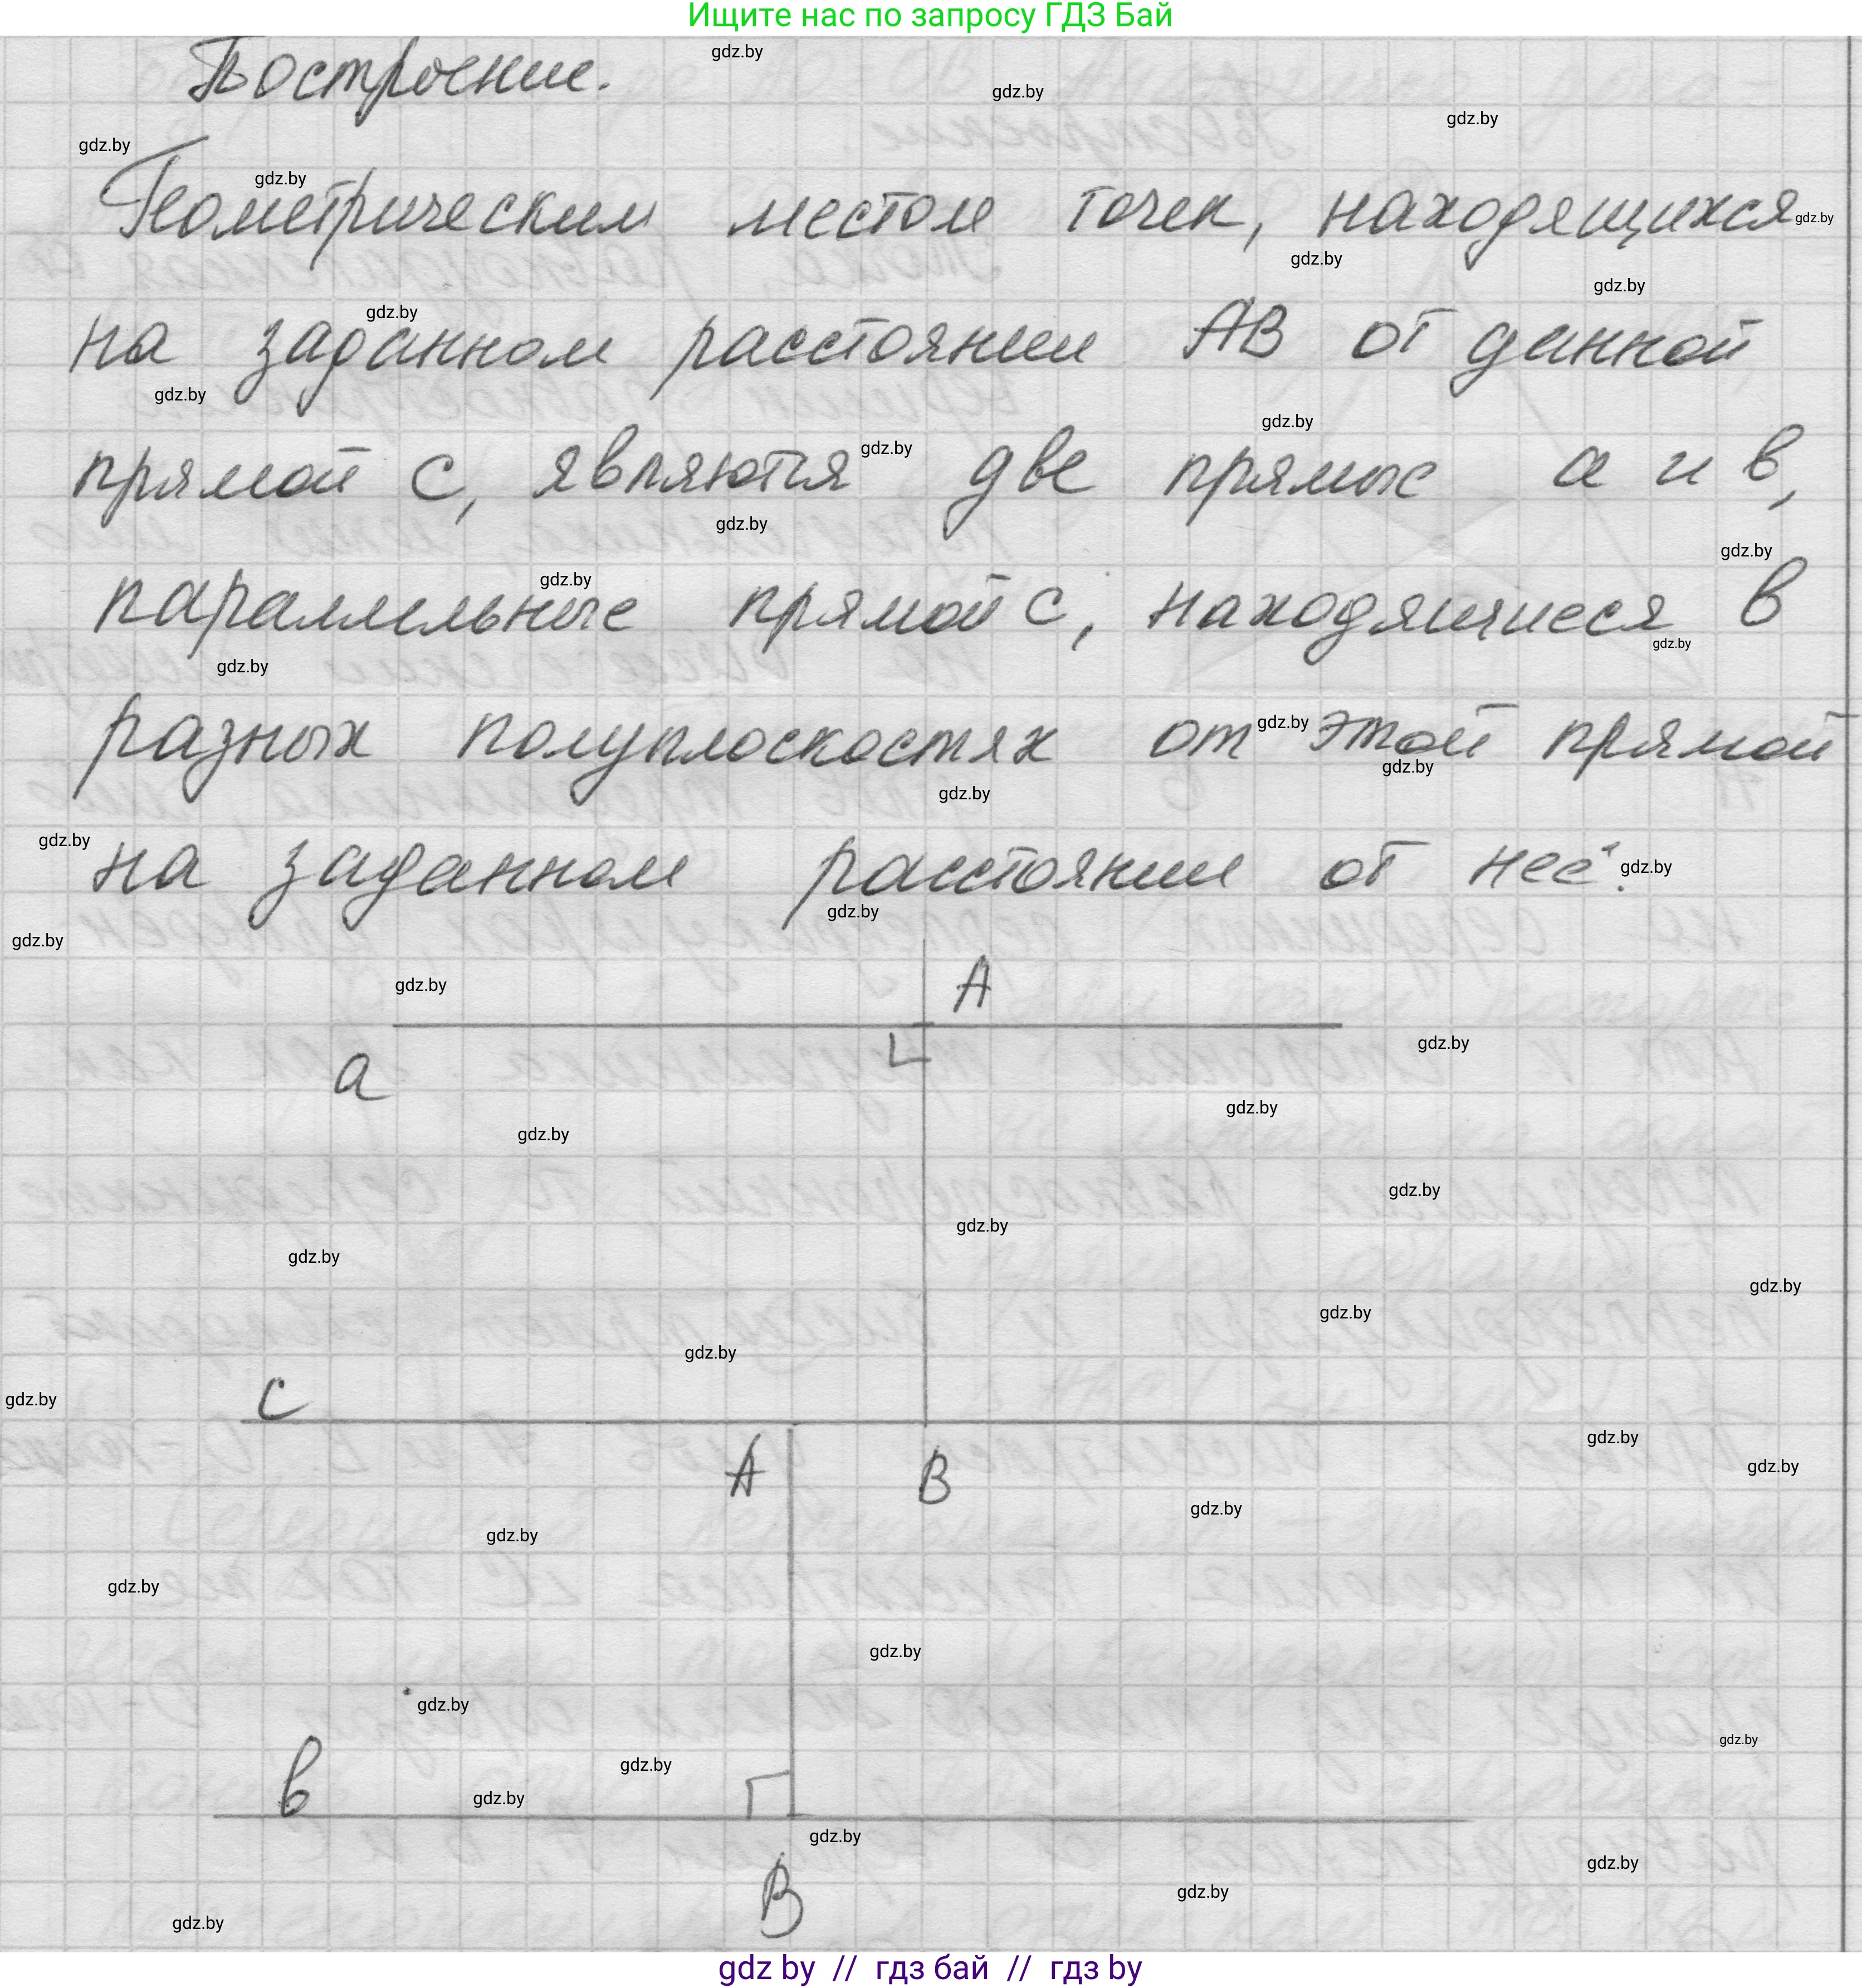 Ищите нас по запросу ГДЗ Бай
Построение.
Геометрическим местом точек, находящихся
на заданном расстоянии АВ от данной
прямой с, являются две прямые а и в,
параллельные прямой с, находящиеся в
разных полуплоскостях от этой прямой
на заданном расстоянии от неё.
А
а
с
А В
в
В
gdz by // гдз бай // гдз by